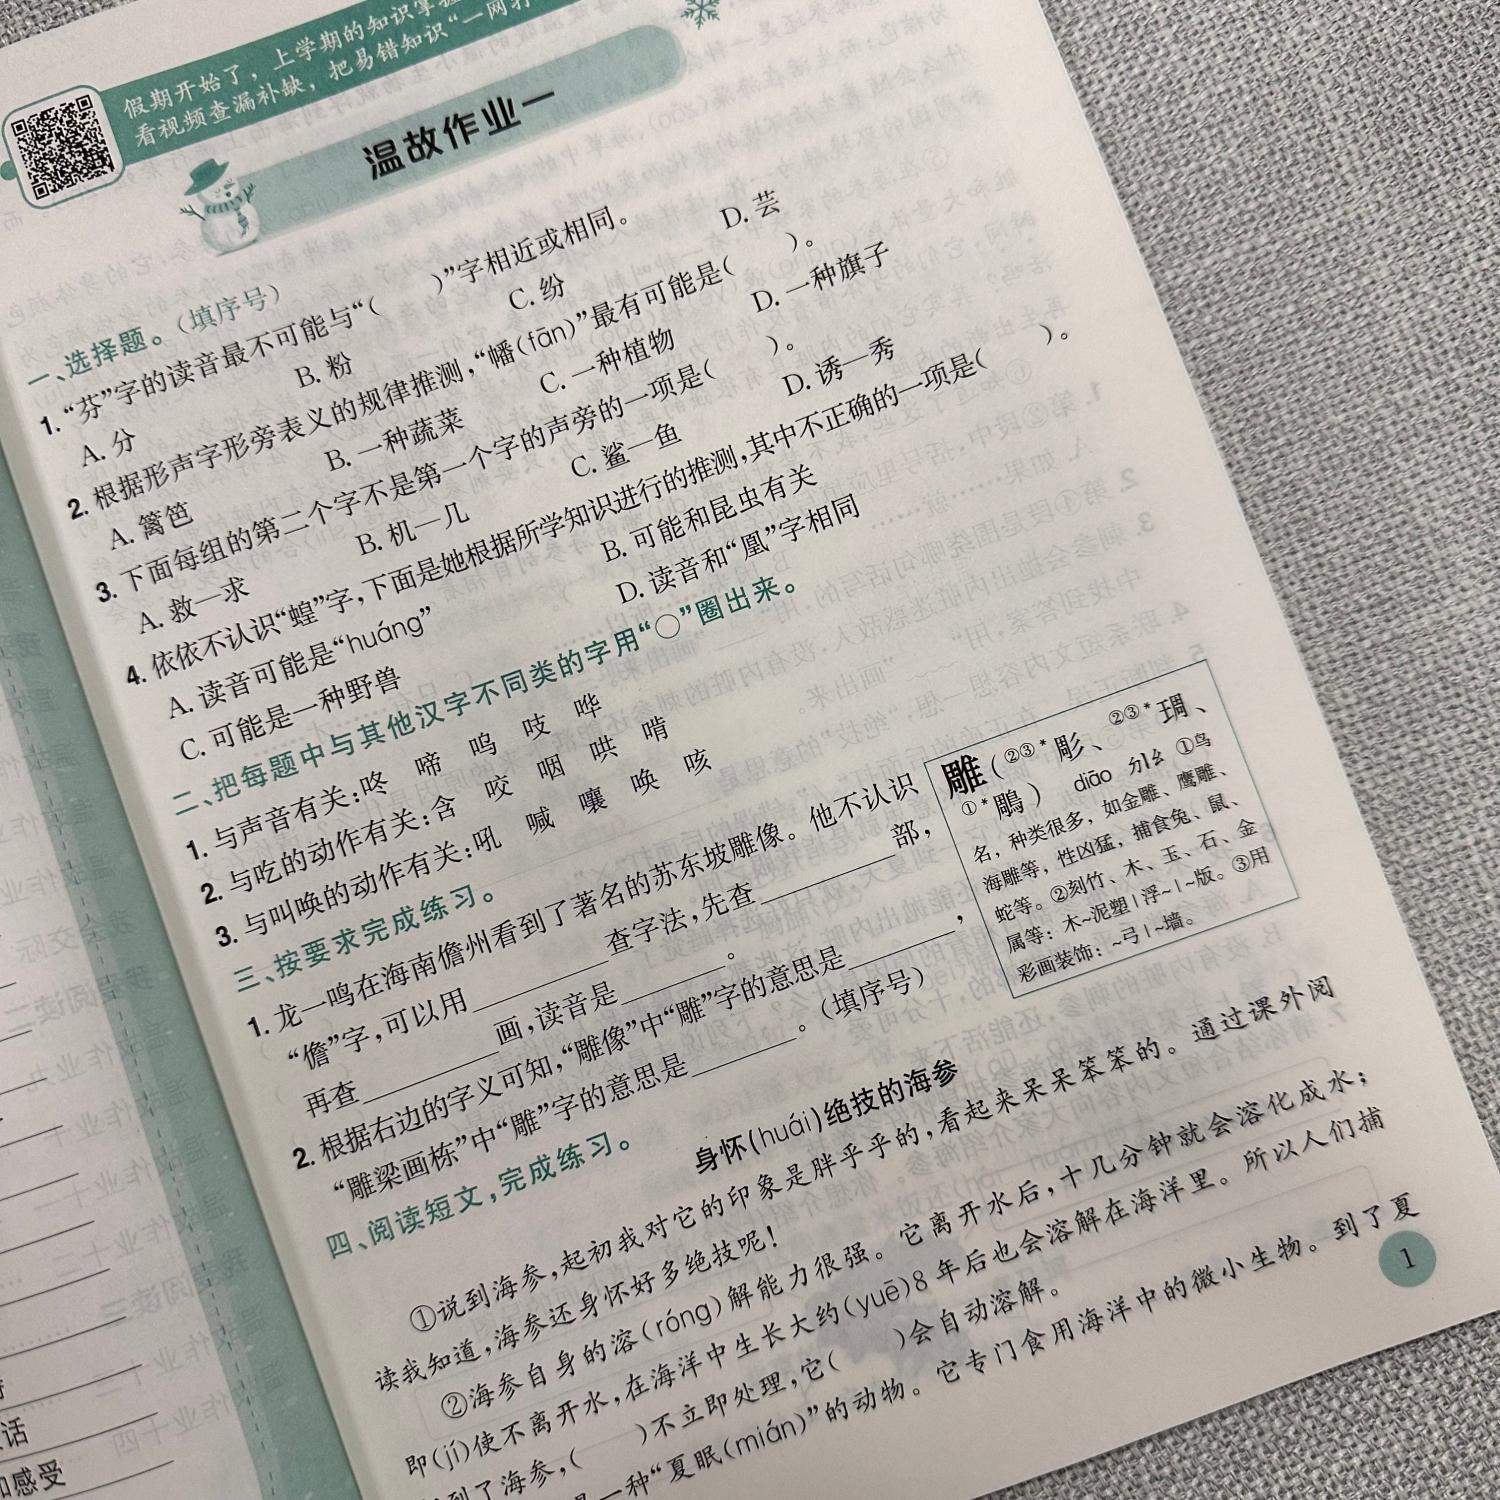 假期开始了，上学期的知识掌握
看视频查漏补缺，把易错知识“一网打
温故作业一
一、选择题。（填序号）
1. “芬”字的读音最不可能与“(　　)”字相近或相同。
A. 分　B. 粉　C. 纷　D. 芸
2. 根据形声字形旁表义的规律推测，“幡(fān)”最有可能是(　　)。
A. 篱笆　B. 一种蔬菜　C. 一种植物　D. 一种旗子
3. 下面每组的第二个字不是第一个字的声旁的一项是(　　)。
A. 救—求　B. 机—几　C. 鲨—鱼　D. 诱—秀
4. 依依不认识“蝗”字，下面是她根据所学知识进行的推测，其中不正确的一项是(　　)。
A. 读音可能是“huáng”　B. 可能和昆虫有关
C. 可能是一种野兽　D. 读音和“凰”字相同
二、把每题中与其他汉字不同类的字用“○”圈出来。
1. 与声音有关：咚　啼　呜　吱　哗
2. 与吃的动作有关：含　咬　咽　哄　啃
3. 与叫唤的动作有关：吼　喊　嚷　唤　咳
三、按要求完成练习。
1. 龙一鸣在海南儋州看到了著名的苏东坡雕像。他不认识
“儋”字，可以用________查字法，先查________部，
再查________画，读音是________。
2. 根据右边的字义可知，“雕像”中“雕”字的意思是________，
“雕梁画栋”中“雕”字的意思是________。（填序号）
雕(②③*彫、②③*琱、
①*鵰) diāo ㄉㄧㄠ ①鸟
名，种类很多，如金雕、鹰雕、
海雕等，性凶猛，捕食兔、鼠、
蛇等。②刻竹、木、玉、石、金
属等：木~泥塑|浮~|~版。③用
彩画装饰：~弓|~墙。
四、阅读短文，完成练习。
身怀(huái)绝技的海参
①说到海参，起初我对它的印象是胖乎乎的，看起来呆呆笨笨的。通过课外阅
读我知道，海参还身怀好多绝技呢！
②海参自身的溶(róng)解能力很强。它离开水后，十几分钟就会溶化成水；
即(jí)使不离开水，在海洋中生长大约(yuē)8年后也会溶解在海洋里。所以人们捕
到了海参，(　　)不立即处理，它(　　)会自动溶解。
一种“夏眠(mián)”的动物。它专门食用海洋中的微小生物。到了夏
1
话
感受